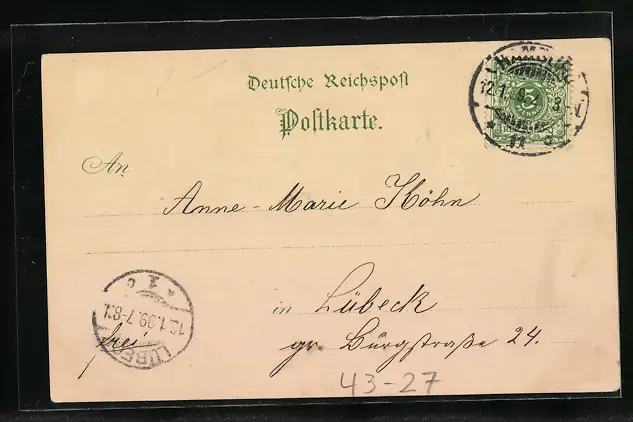 Deutsche Reichspost
Postkarte.
5
An
Anne-Marie Köhn
in Lübeck
gr. Burgstraße 24.
frei
12.1.99.7-8V
43-27